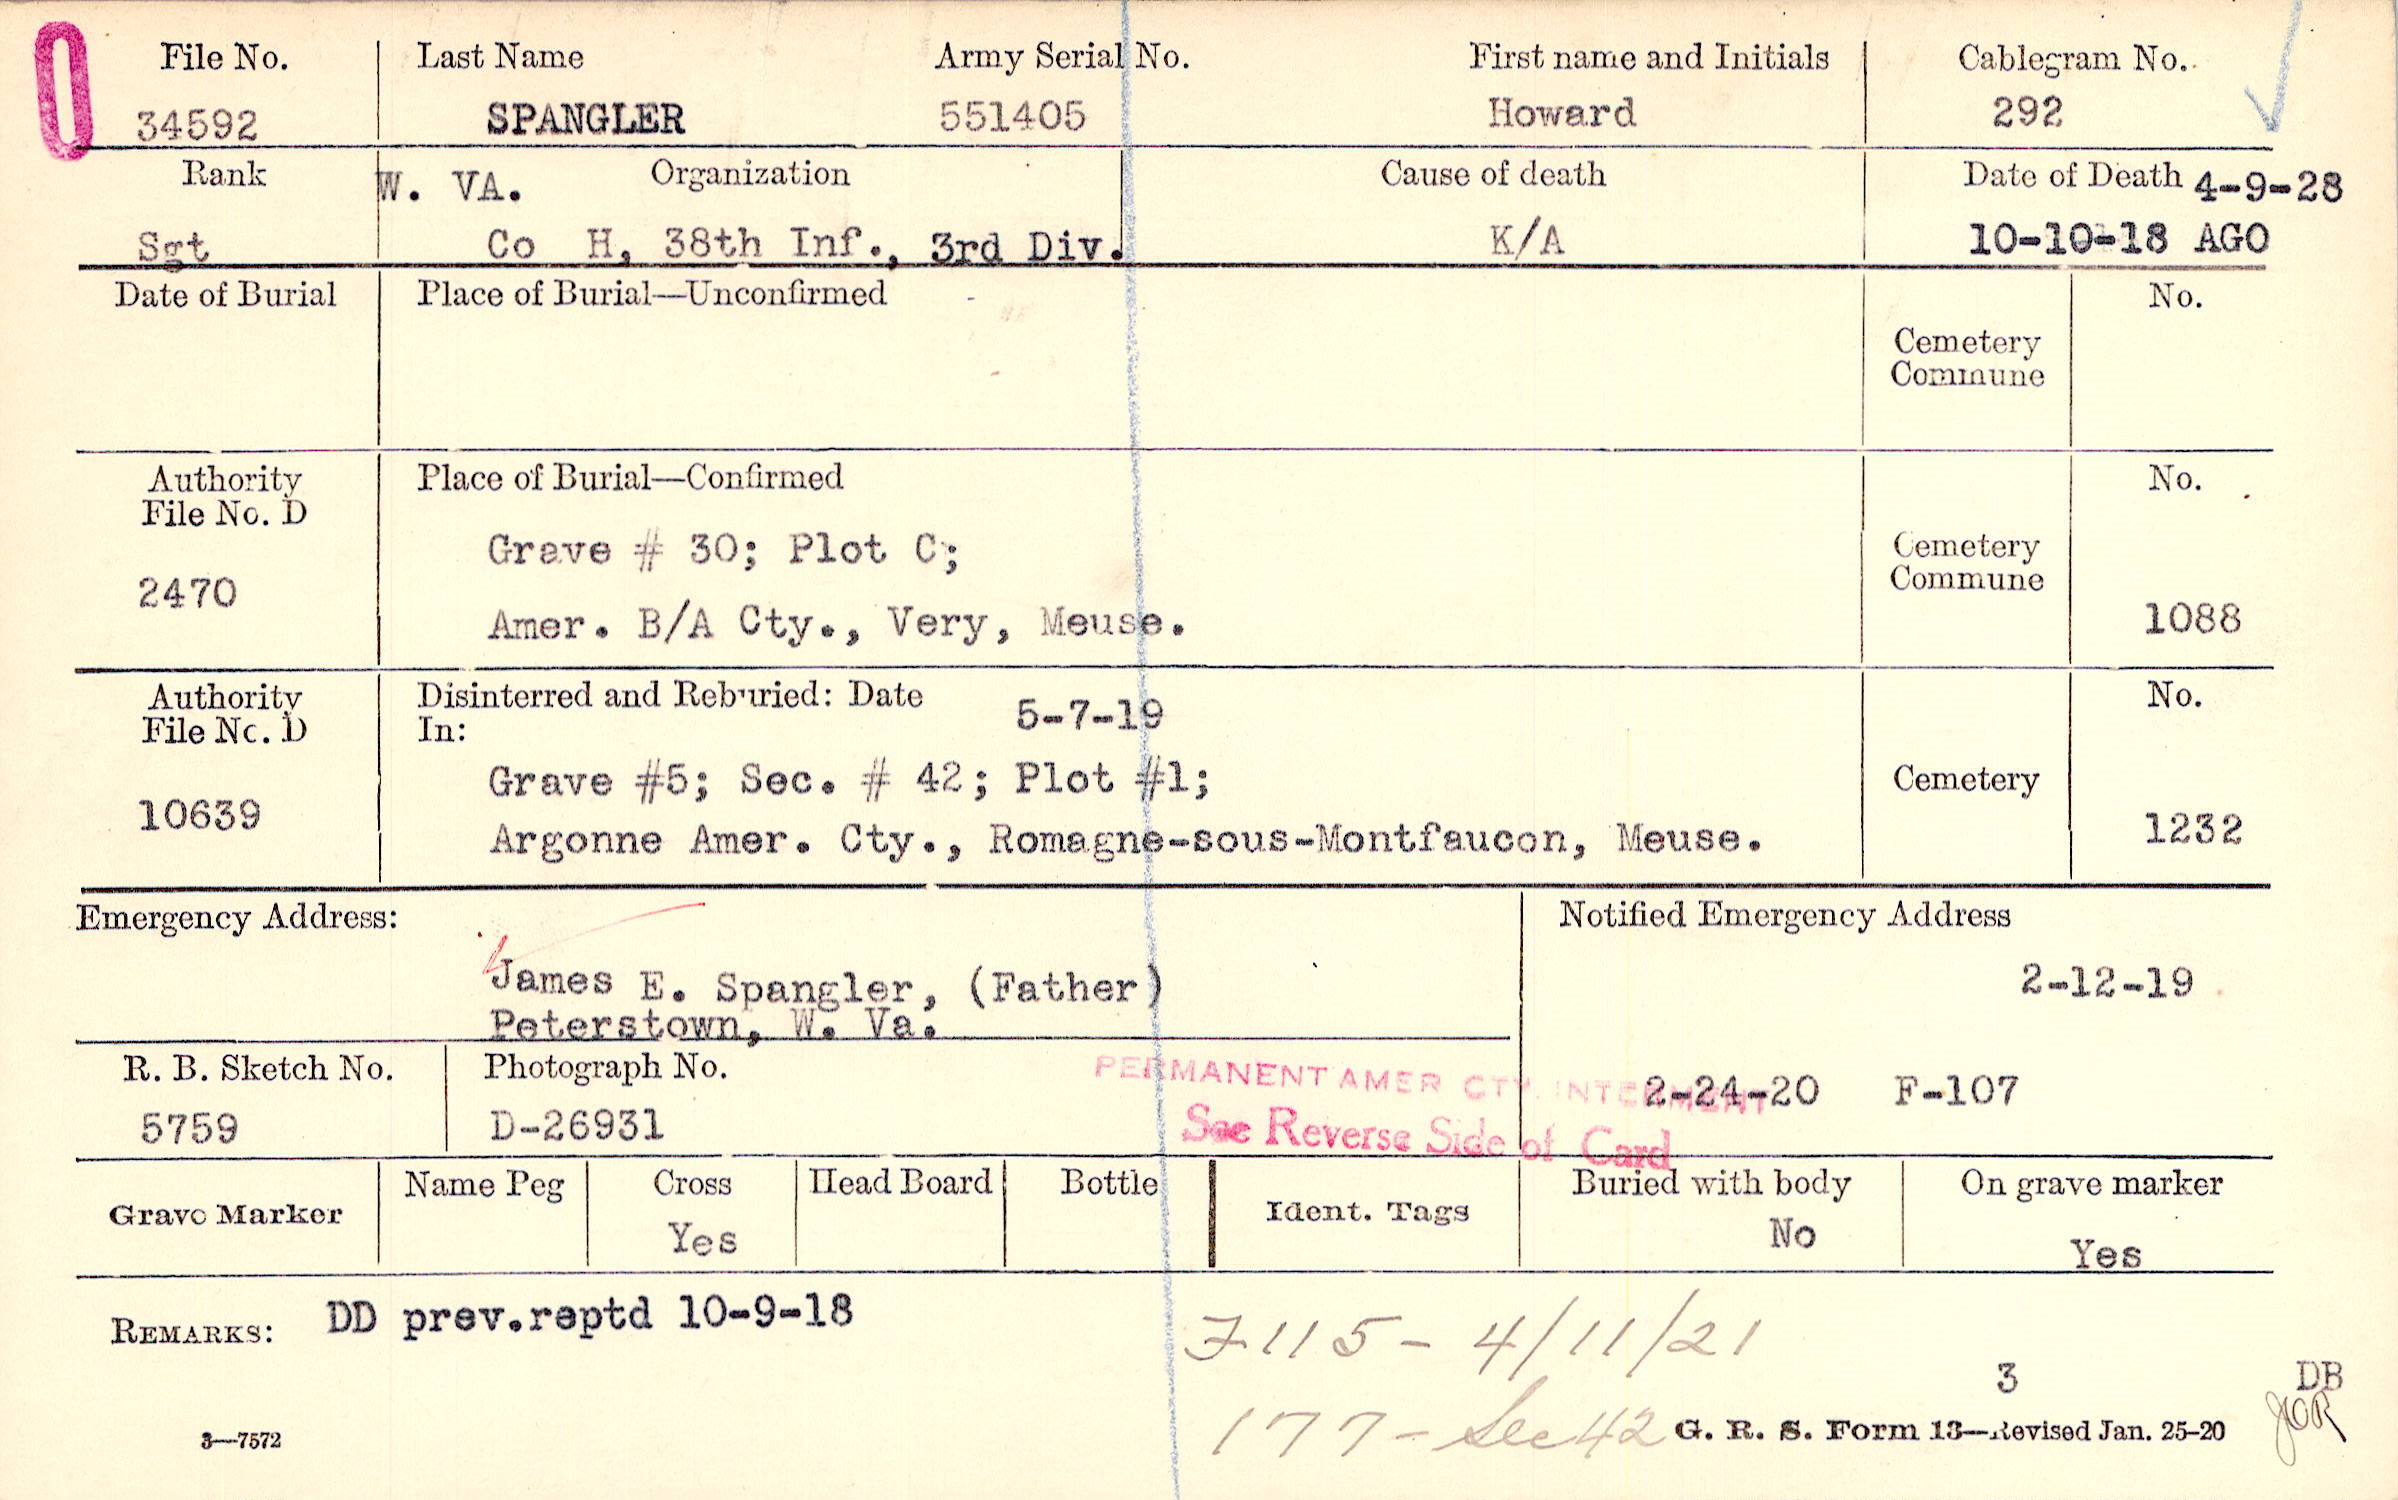 File No. Last Name Army Serial No. First name and Initials Cablegram No.
34592 SPANGLER 551405 Howard 292
Rank W. VA. Organization Cause of death Date of Death 4-9-28
Sgt Co H, 38th Inf., 3rd Div. K/A 10-10-18 AGO
Date of Burial Place of Burial—Unconfirmed No.
Cemetery
Commune
Authority Place of Burial—Confirmed No.
File No. D
Grave # 30; Plot C; Cemetery
Commune
2470
Amer. B/A Cty., Very, Meuse. 1088
Authority Disinterred and Reburied: Date 5-7-19 No.
File No. D In:
Grave #5; Sec. # 42; Plot #1; Cemetery
10639
Argonne Amer. Cty., Romagne-sous-Montfaucon, Meuse. 1232
Emergency Address: Notified Emergency Address
James E. Spangler, (Father) 2-12-19
Peterstown, W. Va.
R. B. Sketch No. Photograph No. PERMANENT AMER CTY. INTERMENT 2-24-20 F-107
5759 D-26931 See Reverse Side of Card
Grave Marker Name Peg Cross Head Board Bottle Ident. Tags Buried with body On grave marker
Yes No Yes
REMARKS: DD prev.reptd 10-9-18
F115 - 4/11/21
3 DB
177 - Sec 42 JOR
3—7572 G. R. S. Form 13—Revised Jan. 25-20